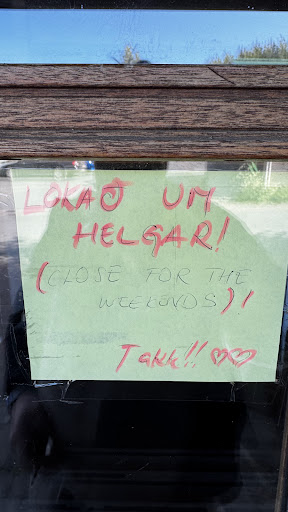 LOKAÐ UM
HELGAR!
(CLOSE FOR THE
WEEKENDS)!
Takk!! ♡♡